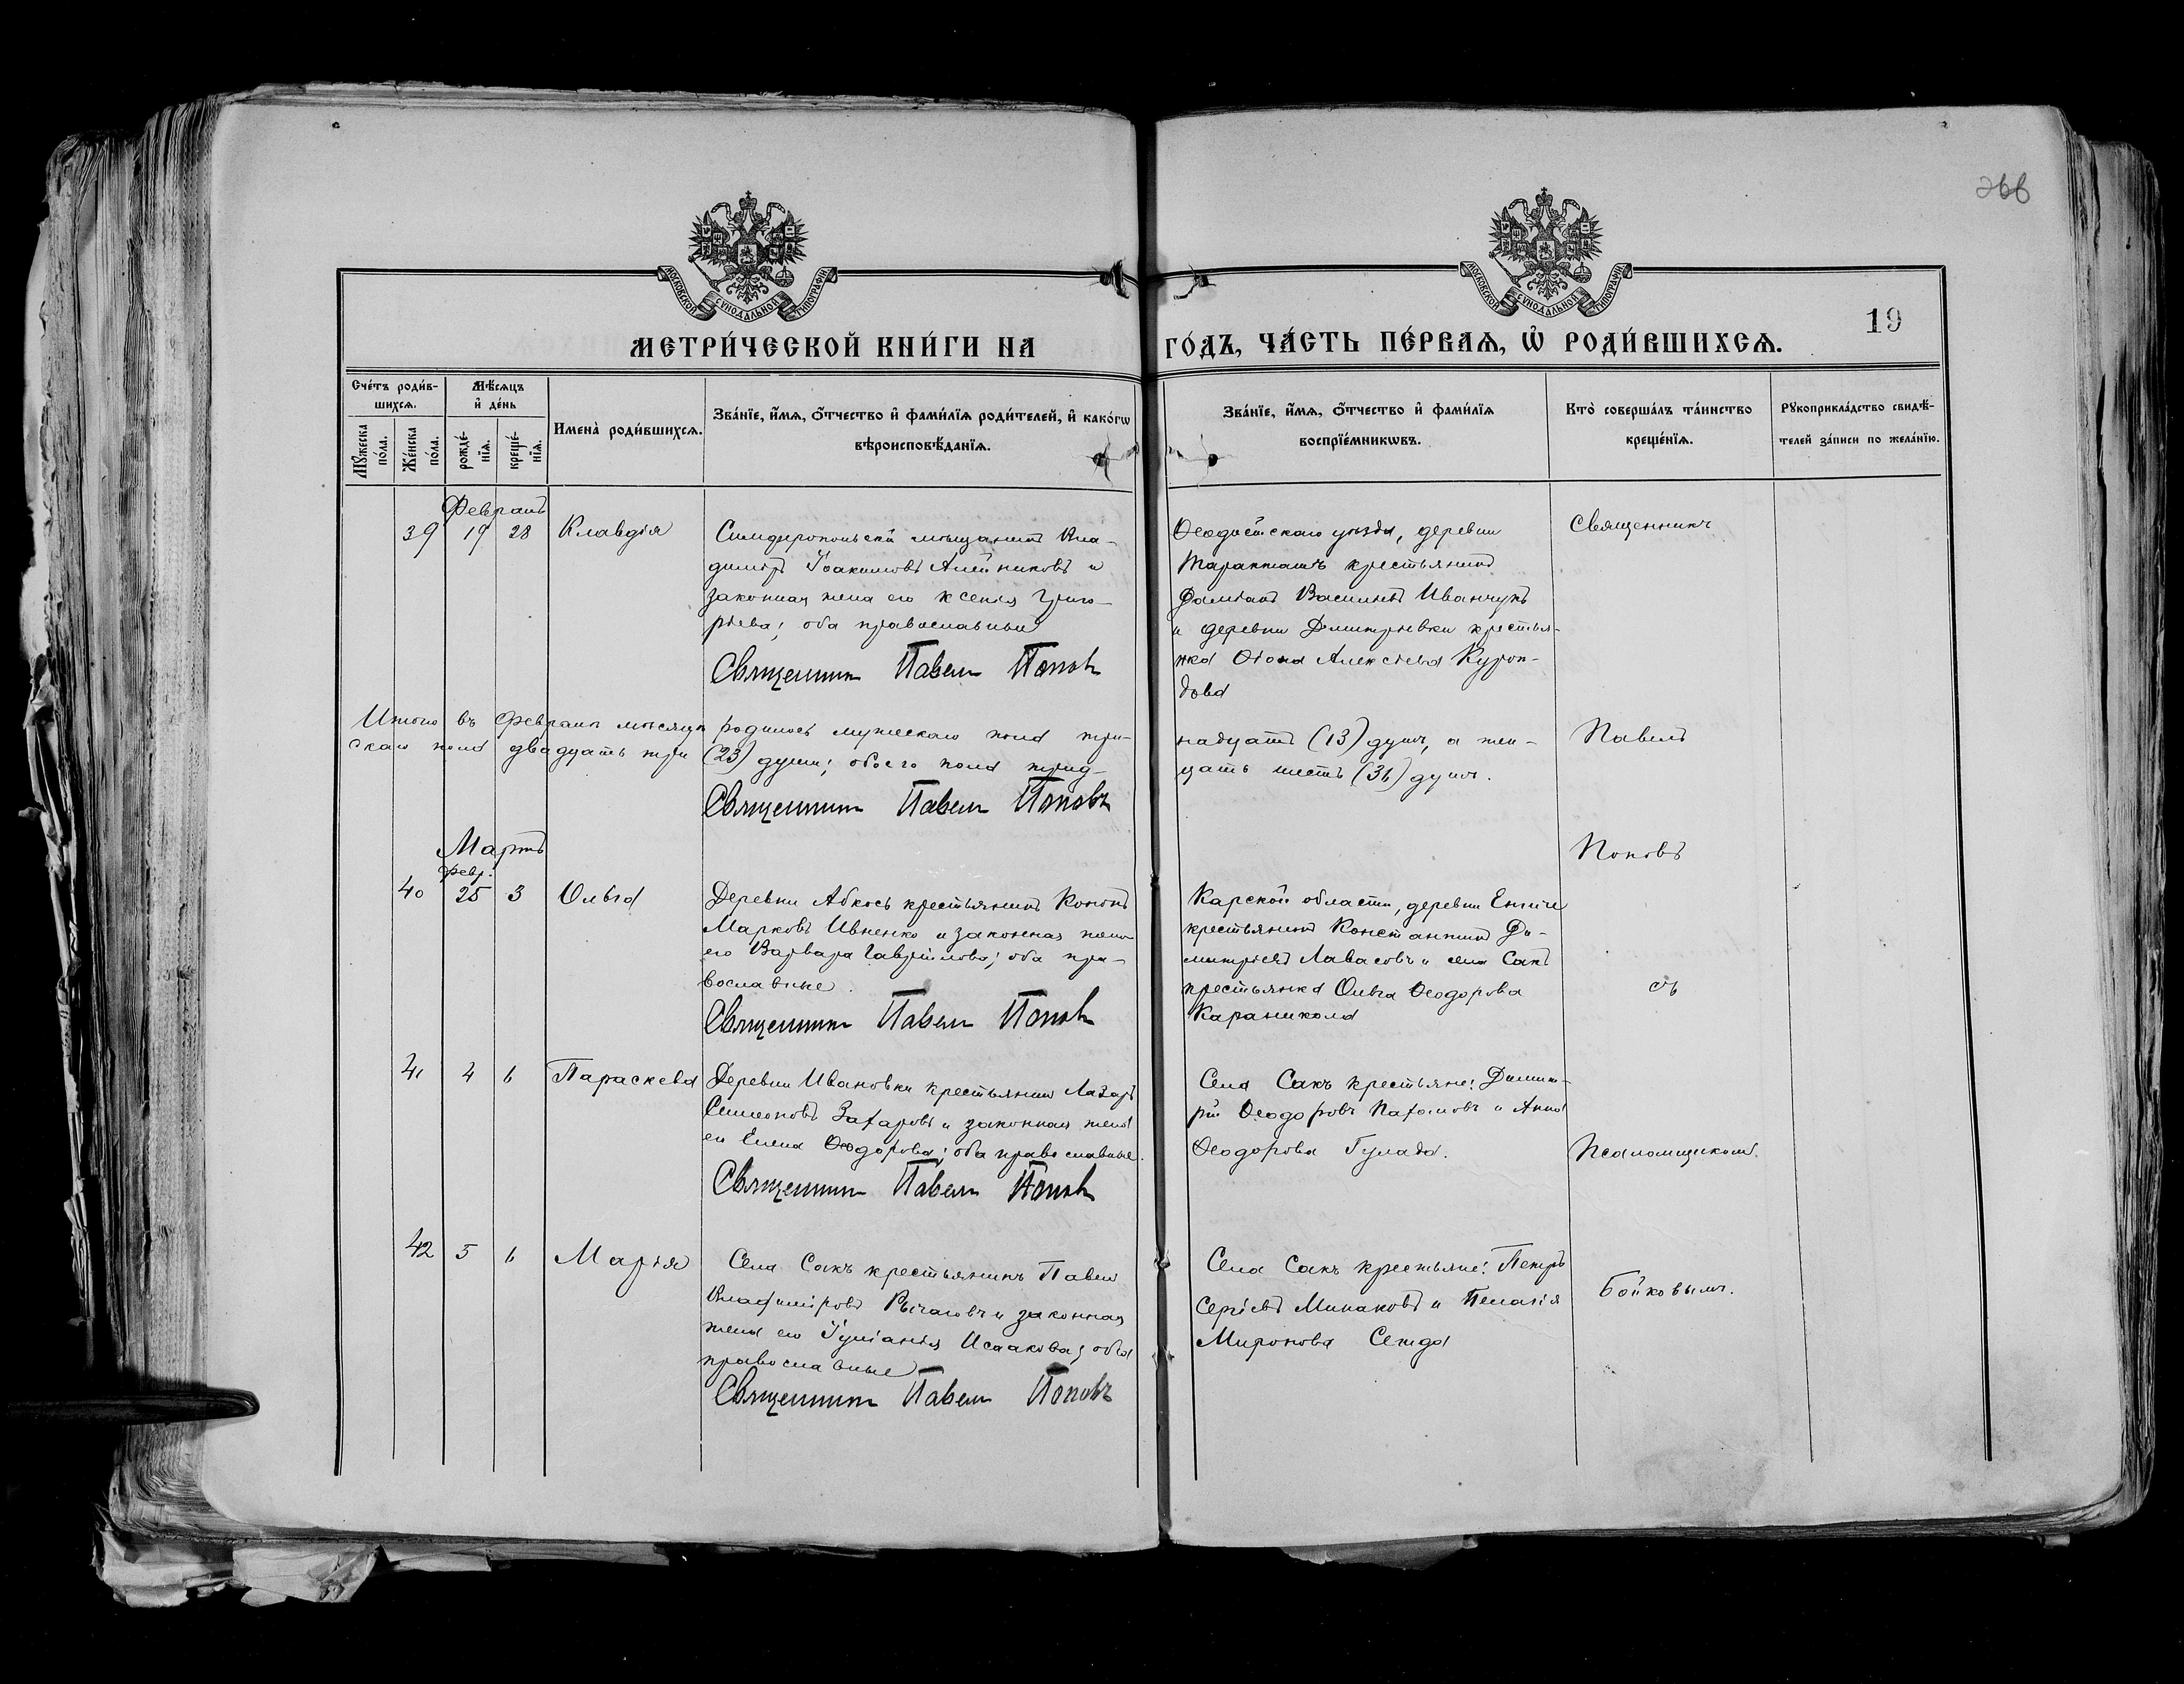 266
МОСКОВСКОЙ СУНОДАЛЬНОЙ ТИПОГРАФІИ
МОСКОВСКОЙ СУНОДАЛЬНОЙ ТИПОГРАФІИ
19
МЕТРИ́ЧЕСКОЙ КНИ́ГИ НА ГО́ДЪ, ЧА́СТЬ ПЕ́РВАѦ, Ѡ҆ РОДИ́ВШИХСѦ.
Сче́тъ роди́в-
шихсѧ.
Мѣ́сѧцъ
и҆ де́нь
Мꙋ́жеска
по́ла.
Же́нска
по́ла.
рожде́-
нїѧ.
креще́-
нїѧ.
Имена̀ роди́вшихсѧ.
Зва́нїе, и҆́мѧ, ѻ҆́тчество и҆ фами́лїѧ роди́телей, и҆ како́гѡ
вѣроисповѣ́данїѧ.
Зва́нїе, и҆́мѧ, ѻ҆́тчество и҆ фами́лїѧ
воспрїе́мникѡвъ.
Кто̀ соверша́лъ та́инство
креще́нїѧ.
Рꙋкоприкла́дство свидѣ́-
телей за́писи по жела́нїю.
Февраль
39 19 28 Клавдія
Симферопольскій мѣщанинъ Вла-
диміръ Іоакимовъ Алейниковъ и
законная жена его Ксенія Григо-
рьева; оба православные
Священник Павел Попов
Ѳеодосійскаго уѣзда, деревни
Таракташъ крестьянинъ
Даміанъ Васильевъ Иванчукъ
и деревни Димитріевки крестья-
нка Алексѣева
дова
Священникъ
Итого въ Февралѣ мѣсяцѣ родилось мужескаго пола три-
надцать (13) душъ, а жен-
скаго пола двадцать три (23) души; обоего пола трид-
цать шесть (36) душъ.
Священник Павел Поповъ
Павелъ
Мартъ
Февр.
Поповъ
40 25 3 Ольга
Деревни Абкосъ крестьянинъ Кононъ
Марковъ Ивненко и законная жена
его Варвара Гавріилова; оба пра-
вославные.
Священник Павел Попов
Карской области, деревни
крестьянинъ Константинъ Ди-
митріевъ Лавасовъ и села Сакъ
крестьянка Ольга Ѳеодорова
Караникола
съ
41 4 6 Параскева
Деревни Ивановки крестьянинъ Лазарь
Симеоновъ Захаровъ и законная жена
его Елена Ѳеодорова; оба православные.
Священник Павел Попов
Села Сакъ крестьяне: Димит-
рій Ѳеодоровъ Пахомовъ и Анна
Ѳеодорова Гулада.
Псаломщикомъ
42 5 6 Марія
Села Сакъ крестьянинъ Павелъ
Владиміровъ Рычаговъ и законная
жена его Іуліанія Исаакова; оба
православные
Священник Павел Поповъ
Села Сакъ крестьяне: Петръ
Сергіевъ Минаковъ и Пелагія
Миронова
Бойковымъ.